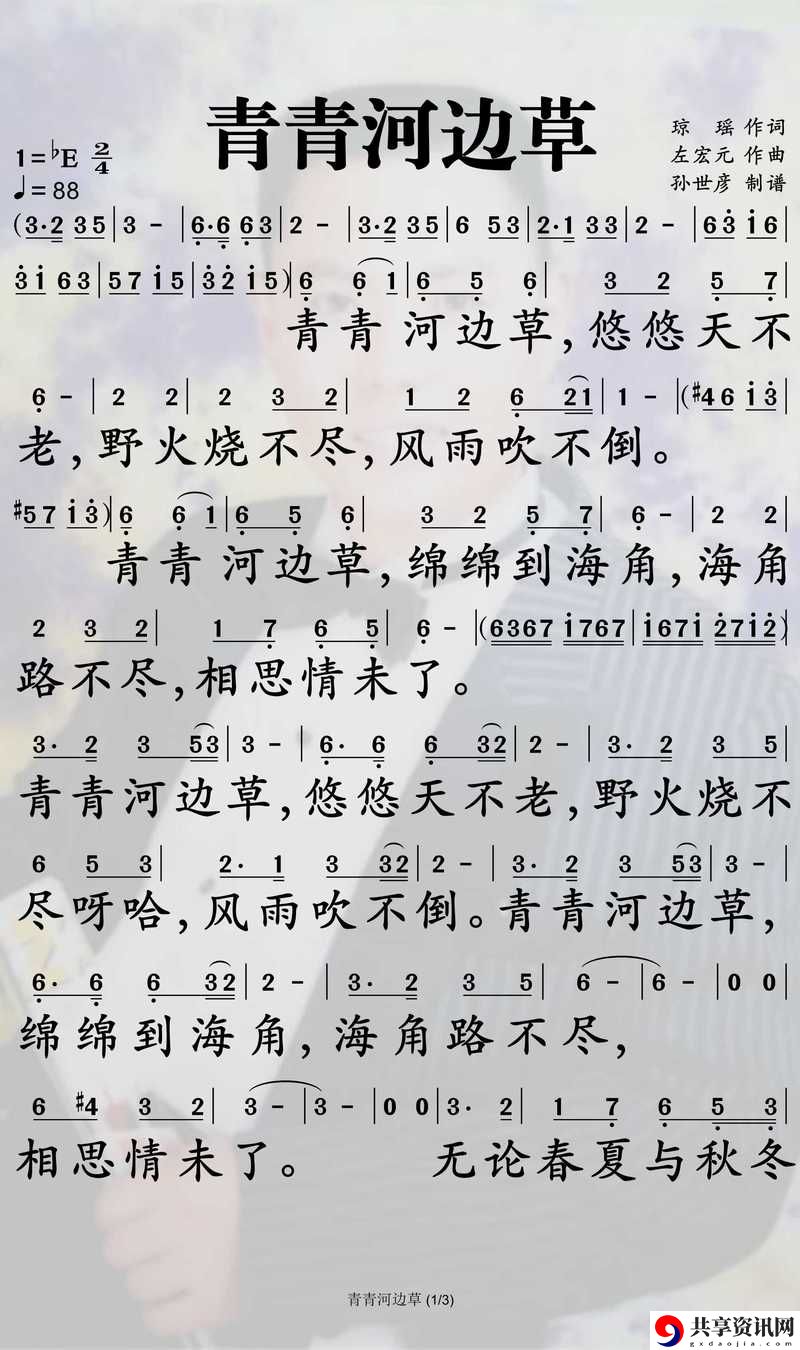 青青河边草
1=♭E 2/4
♩=88
琼 瑶 作词
左宏元 作曲
孙世彦 制谱
(3·2 35|3 -|6·6 63|2 -|3·2 35|6 53|2·1 33|2 -|63 i6|
3i 63|57 i5|32 i5)|6 6 1|6 5 6| 3 2 5 7|
青青河边草,悠悠天不
6 -|2 2|2 3 2| 1 2 6 21|1 -|(#46 i3|
老,野火烧不尽,风雨吹不倒。
#57 i3)|6 6 1|6 5 6| 3 2 5 7|6 -|2 2|
青青河边草,绵绵到海角,海角
2 3 2| 1 7 6 5|6 -|(6367 i767|i67i 27i2)|
路不尽,相思情未了。
3· 2 3 53|3 -|6· 6 6 32|2 -|3· 2 3 5|
青青河边草,悠悠天不老,野火烧不
6 5 3| 2· 1 3 32|2 -|3· 2 3 53|3 -|
尽呀哈,风雨吹不倒。青青河边草,
6· 6 6 32|2 -|3· 2 3 5|6 -|6 -|0 0|
绵绵到海角,海角路不尽,
6 #4 3 2|3 -|3 -|0 0|3· 2|1 7 6 5 3|
相思情未了。 无论春夏与秋冬
青青河边草 (1/3)
共享资讯网
gxdaojia.com